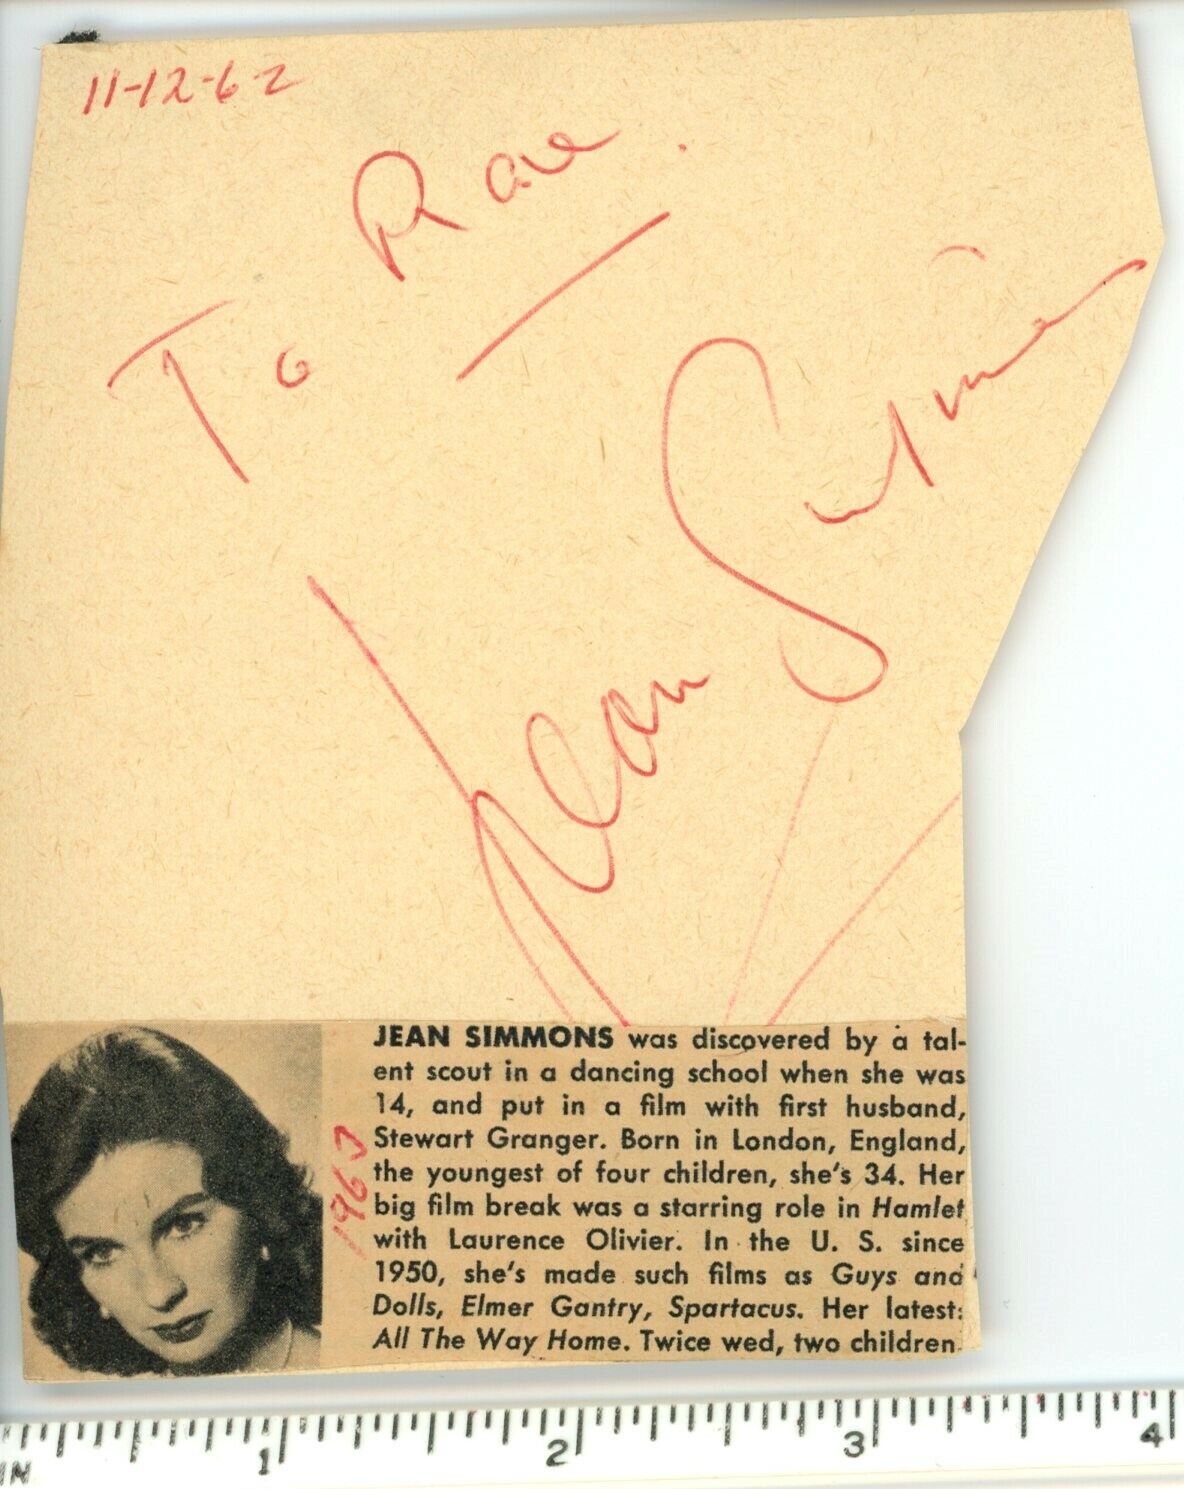 11-12-62
To Rae
Jean Simmons
1963
JEAN SIMMONS was discovered by a tal-
ent scout in a dancing school when she was
14, and put in a film with first husband,
Stewart Granger. Born in London, England,
the youngest of four children, she's 34. Her
big film break was a starring role in Hamlet
with Laurence Olivier. In the U. S. since
1950, she's made such films as Guys and
Dolls, Elmer Gantry, Spartacus. Her latest:
All The Way Home. Twice wed, two children.
IN 1 2 3 4